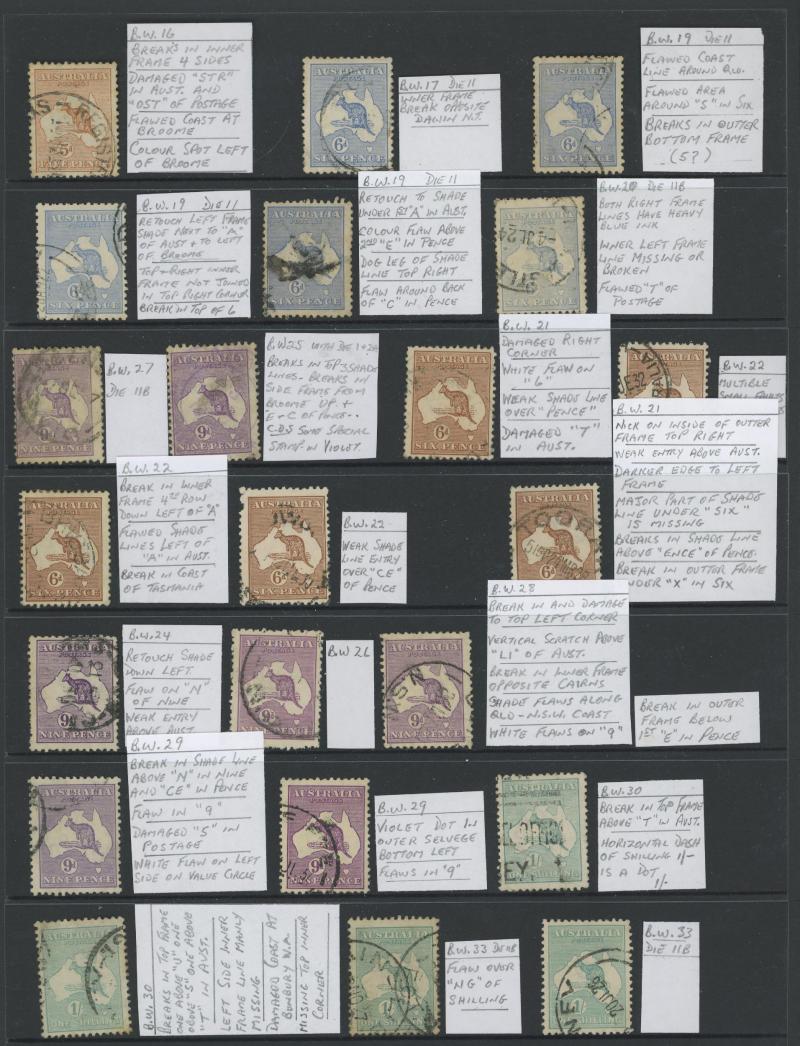 B.W.16
BREAKS IN INNER
FRAME 4 SIDES
DAMAGED "STR"
IN AUST. AND
"OST" OF POSTAGE
FLAWED COAST AT
BROOME
COLOUR SPOT LEFT
OF BROOME
B.W.17 DIE 11
INNER FRAME
BREAK OPPOSITE
DAWIN N.T.
B.W.19 DIE 11
FLAWED COAST
LINE AROUND QLD.
FLAWED AREA
AROUND "S" IN SIX
BREAKS IN OUTTER
BOTTOM FRAME
(5?)
AUSTRALIA
POSTAGE
5d
FIVE PENCE
AUSTRALIA
POSTAGE
6d
SIX PENCE
AUSTRALIA
POSTAGE
6d
SIX PENCE
B.W.19 DIE 11
RETOUCH LEFT FRAME
SHADE NEXT TO "A"
OF AUST + TO LEFT
OF BROOME
TOP + RIGHT INNER
FRAME NOT JOINED
IN TOP RIGHT CORNER
BREAK IN TOP OF 6
B.W.19 DIE 11
RETOUCH TO SHADE
UNDER 1ST "A" IN AUST.
COLOUR FLAW ABOVE
2ND "E" IN PENCE
DOG LEG OF SHADE
LINE TOP RIGHT
FLAW AROUND BACK
OF "C" IN PENCE
B.W.20 DIE 11B
BOTH RIGHT FRAME
LINES HAVE HEAVY
BLUE INK
INNER LEFT FRAME
LINE MISSING OR
BROKEN
FLAWED "T" OF
POSTAGE
AUSTRALIA
6d
SIX PENCE
AUSTRALIA
6d
SIX PENCE
AUSTRALIA
-4JL24
6d
SIX PENCE
B.W.27
DIE 11B
B.W25 WITH DIE 1+2A
BREAKS IN TOP 3 SHADE
LINES - BREAKS IN
SIDE FRAME FROM
BROOME UP. +
E - C OF PENCE..
C.D.S SOME SPECIAL
STAMP IN VIOLET.
B.W.21
DAMAGED RIGHT
CORNER
WHITE FLAW ON
"6"
WEAK SHADE LINE
OVER "PENCE"
DAMAGED "T"
IN AUST.
B.W.22
MULTIBLE
SMALL FAULTS
9d
NINE PENCE
AUSTRALIA
9d
NINE PENCE
AUSTRALIA
6d
SIX PENCE
B.W.21
NICK ON INSIDE OF OUTTER
FRAME TOP RIGHT
WEAK ENTRY ABOVE AUST.
DARKER EDGE TO LEFT
FRAME
MAJOR PART OF SHADE
LINE UNDER "SIX"
IS MISSING
BREAKS IN SHADE LINE
ABOVE "ENCE" OF PENCE.
BREAK IN OUTTER FRAME
UNDER "X" IN SIX
B.W.22
BREAK IN INNER
FRAME 4TH ROW
DOWN LEFT OF "A"
FLAWED SHADE
LINES LEFT OF
"A" IN AUST.
BREAK IN COAST
OF TASMANIA
B.W.22
WEAK SHADE
LINE ENTRY
OVER "CE"
OF PENCE
AUSTRALIA
6d
SIX PENCE
6d
SIX PENCE
6d
B.W.24
RETOUCH SHADE
DOWN LEFT
FLAW ON "N"
OF NINE
WEAK ENTRY
ABOVE AUST
B.W 26
B.W.28
BREAK IN AND DAMAGE
TO TOP LEFT CORNER
VERTICAL SCRATCH ABOVE
"LI" OF AUST.
BREAK IN INNER FRAME
OPPOSITE CAIRNS
SHADE FLAWS ALONG
QLD - N.S.W. COAST
WHITE FLAWS ON "9"
BREAK IN OUTER
FRAME BELOW
1ST "E" IN PENCE
9d
NINE PENCE
AUSTRALIA
9d
NINE PENCE
AUSTRALIA
9d
NINE PENCE
B.W.29
BREAK IN SHADE LINE
ABOVE "N" IN NINE
AND "CE" IN PENCE
FLAW IN "9"
DAMAGED "S" IN
POSTAGE
WHITE FLAW ON LEFT
SIDE ON VALUE CIRCLE
B.W.29
VIOLET DOT IN
OUTER SELVEGE
BOTTOM LEFT
FLAWS IN "9"
B.W.30
BREAK IN TOP FRAME
ABOVE "T" IN AUST.
HORIZONTAL DASH
OF SHILLING 1/-
IS A DOT
1/.
AUSTRALIA
9d
NINE PENCE
AUSTRALIA
POSTAGE
9d
NINE PENCE
1/-
B.W.30
BREAKS IN TOP FRAME
ONE ABOVE "U" ONE
ABOVE "S" ONE ABOVE
"T" IN AUST.
LEFT SIDE INNER
FRAME LINE MANLY
MISSING
DAMAGED COAST AT
BUNBURY W.A.
MISSING TOP INNER
CORNER
B.W.33 DIE 11B
FLAW OVER
"NG" OF
SHILLING
B.W.33
DIE 11B
AUSTRALIA
1/-
ONE SHILLING
AUSTRALIA
1/-
AUSTRALIA
1/-
ONE SHILLING